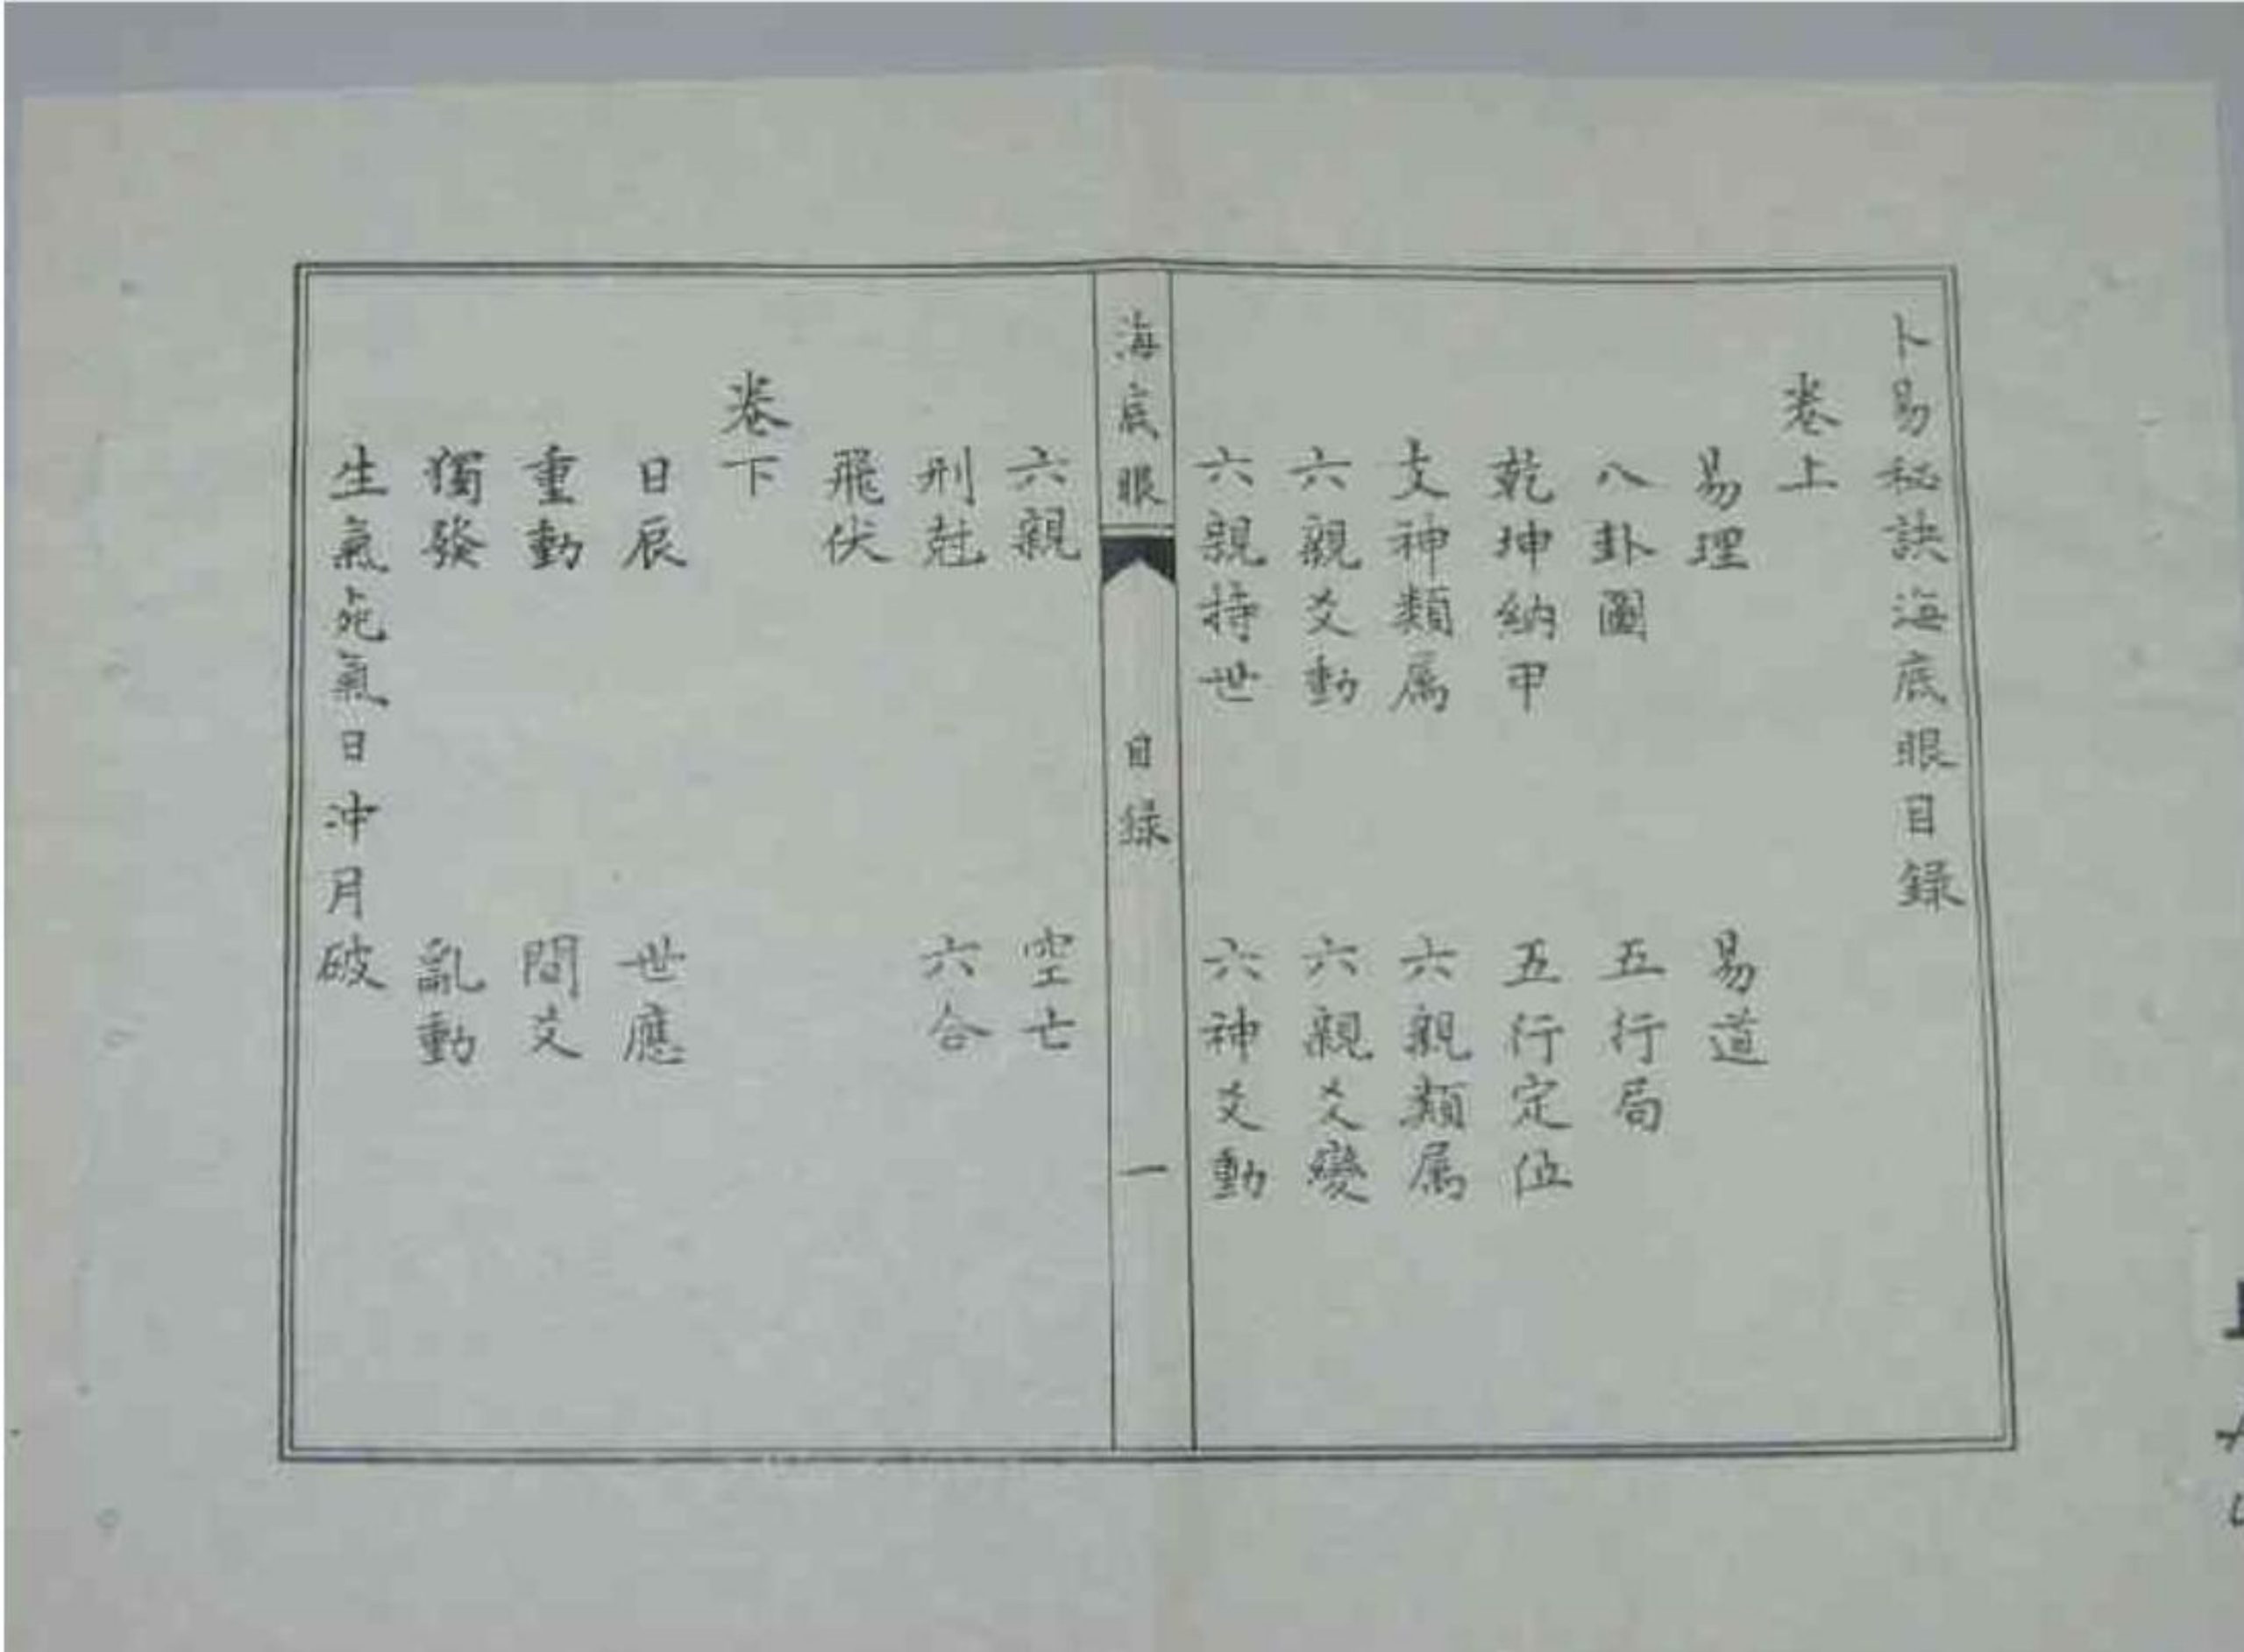 卜易秘訣海底眼目錄
卷上
易理 易道
八卦圖 五行局
乾坤納甲 五行定位
支神類属 六親類属
六親爻動 六親爻變
六親持世 六神爻動
海底眼 目録 一
六親 空亡
刑尅 六合
飛伏
卷下
日辰 世應
重動 間爻
獨發 亂動
生氣死氣日冲月破